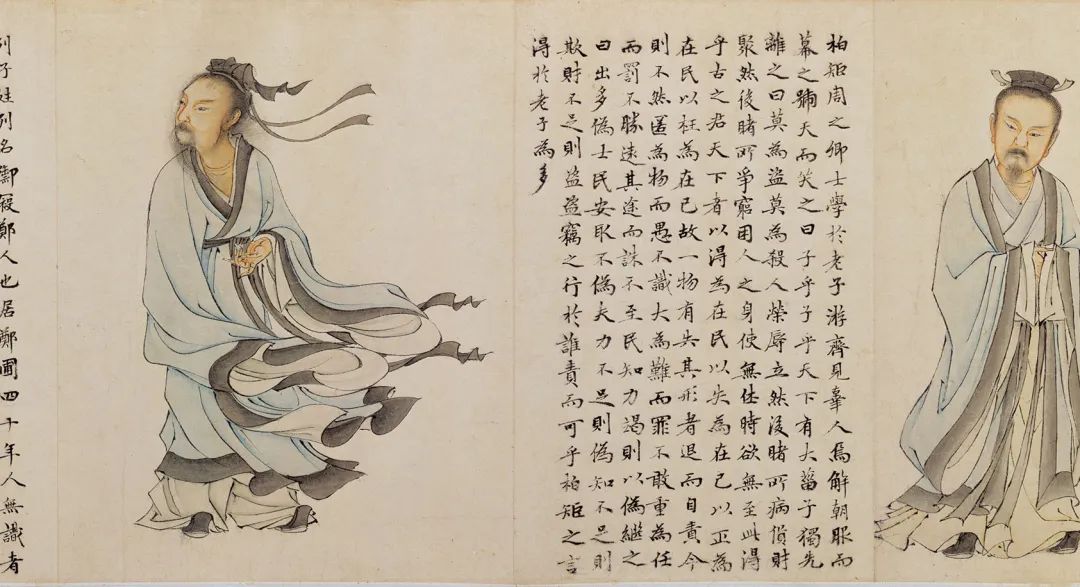 柏矩周之卿士學於老子游齊見辜人焉解朝服而
幕之號天而哭之曰子乎子乎天下有大菑子獨先
離之曰莫為盜莫為殺人榮辱立然後睹所病貨財
聚然後睹所爭窮困人之身使無休時欲無至此得
乎古之君天下者以得為在民以失為在己以正為
在民以枉為在己故一物有失其形者退而自責今
則不然匿為物而愚不識大為難而罪不敢重為任
而罰不勝遠其途而誅不至民知力竭則以偽繼之
日出多偽士民安取不偽夫力不足則偽知不足則
欺財不足則盜盜竊之行於誰責而可乎柏矩之言
得於老子為多
列子姓列名御寇鄭人也居鄭圃四十年人無識者